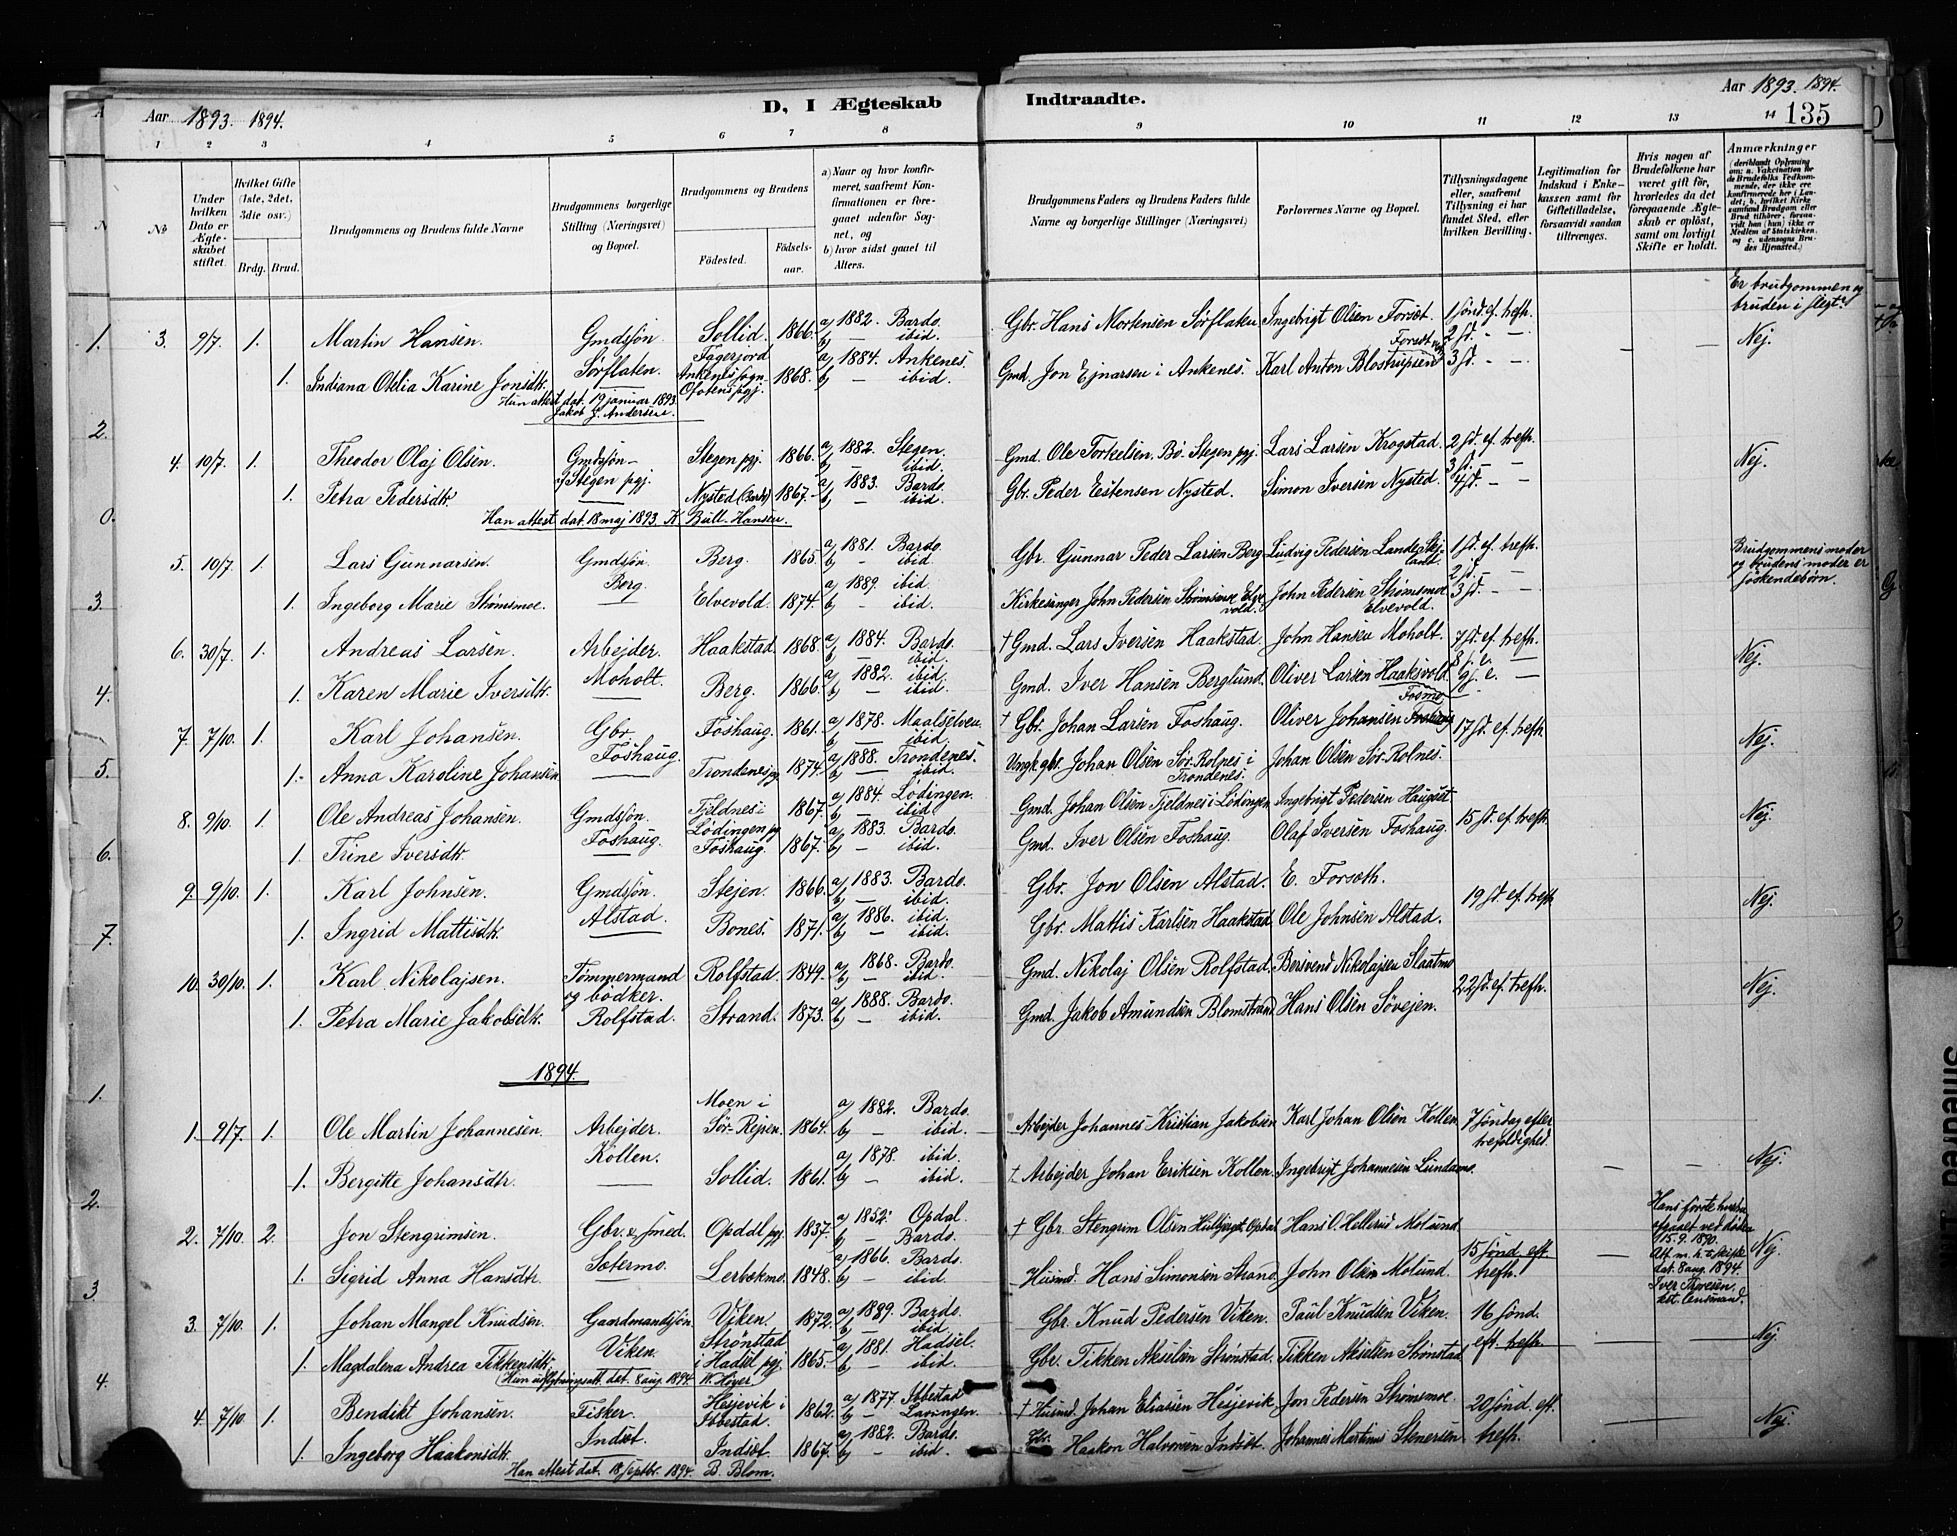 Aar 1893. 1894.
D, I Ægteskab
Indtraadte.
Aar 1893. 1894.
135
1 2 3 4 5 6 7 8 9 10 11 12 13 14
No
Under hvilken Dato er Ægteskabet stiftet.
Hvilket Gifte (1ste, 2det, 3die osv.)
Brdg. Brud.
Brudgommens og Brudens fulde Navne
Brudgommens borgerlige Stilling (Næringsvei) og Bopæl.
Brudgommens og Brudens
Födested.
Födselsaar.
a) Naar og hvor konfirmeret, saafremt Konfirmationen er foregaaet udenfor Sognet, og
b) hvor sidst gaaet til Alters.
Brudgommens Faders og Brudens Faders fulde Navne og borgerlige Stillinger (Næringsvei)
Forlovernes Navne og Bopæl.
Tillysningsdagene eller, saafremt Tillysning ei har fundet Sted, efter hvilken Bevilling.
Legitimation for Indskud i Enkekassen samt for Giftetilladelse, forsaavidt saadan tiltrænges.
Hvis nogen af Brudefolkene har været gift för, hvorledes da det foregaaende Ægteskab er oplöst, samt om lovligt Skifte er holdt.
Anmærkninger
Er brudgommen og bruden i slegt?
3. 9/7. 1. Martin Hansen. Gmdsön. Sollid. 1866. a) 1882. Bardo. Gbr. Hans Mortensen Sørflaten Ingebrigt Olsen Forset. 1 sönd. ef. trefh. Nej.
Sørflaten. Fagerjord b) — ibid. Forset 2 sd. - —
1. Indiana Otelia Karine Jonsdtr. Ankenes sogn Ofotens pgj. 1868. a) 1884. Ankenes. b) — ibid. Gmd. Jon Ejnarsen i Ankenes. Karl Anton Blostrupsen 3 sd. - —
Hun attest dat. 19 januar 1893.
Jakob J. Andersen.
4. 10/7. 1. Theodor Olaj Olsen. Gmdsön - Stegen pgj. 1866. a) 1882. Stegen. b) — ibid. Gmd. Ole Torkelsen. Bø. Stegen pgj. Lars Larsen Krogstad. 2 sd. ef. trefh. Nej.
af Stegen pgj. 3 sd. - —
1. Petra Pedersdtr. Nysted (Bardo) 1867. a) 1883. Bardo. b) — ibid. Gbr. Peder Estensen Nysted. Simon Iversen Nysted. 4 sd. - —
Han attest dat. 18 maj 1893. K. Bull-Hansen.
5. 10/7. 1. Lars Gunnarsen. Gmdsön. Berg. 1865. a) 1881. Bardo. b) - ibid Gbr. Gunnar Peder Larsen Berg Ludvig Pedersen 1 sd. ef. trefh. Brudgommens moder og brudens moder er söskendebørn.
Berg. 2 sd. - —
1. Ingeborg Marie Strømsmoe. Elvevold. 1874. a) 1889. ibid. b) — ibid. Kirkesanger John Pedersen Strømsmoe Elvevold. John Pedersen Strømsmoe Elvevold. 3 sd. - —
6. 30/7. 1. Andreas Larsen. Arbejder. Haakstad. 1868. a) 1884. Bardo. b) — ibid. † Gmd. Lars Iversen Haakstad. John Hansen Moholt. 7 sd. ef. trefh. Nej.
Moholt. 8 s. e. —
1. Karen Marie Iversdtr. Berg. 1866. a) 1882. ibid b) — ibid. Gmd. Iver Hansen Berglund. Oliver Larsen Haaksvold. 9 s. e. —
7. 7/10. 1. Karl Johansen. Gbr. Foshaug. 1861. a) 1878. Maalselven. b) — ibid. † Gbr. Johan Larsen Foshaug. Oliver Johansen Fosmo 17 sd. ef. trefh Nej.
Foshaug.
1. Anna Karoline Johansen Trondenes pg 1874. a) 1888. Trondenes. b) — ibid. Ungk. gbr. Johan Olsen Sør-Rolnes i Trondenes. Johan Olsen Sør-Rolnes.
8. 9/10. 1. Ole Andreas Johansen. Gmdsjön. Fjeldnes i Lødingen pg 1867. a) 1884. Lødingen. b) — ibid. Gmd. Johan Olsen Fjeldnes i Lødingen Ingebrigt Pedersen Haugset 15 sd. ef. trefh. Nej.
Foshaug.
1. Trine Iversdtr. Foshaug. 1867. a) 1883. Bardo. b) — ibid. Gmd. Iver Olsen Foshaug. Olaf Iversen Foshaug.
9. 9/10. 1. Karl Johnsen. Gmdsjön. Stejen. 1866. a) 1883. Bardo. b) — ibid. Gbr. Jon Olsen Alstad. E. Forseth. 19 sd. ef. trefh Nej.
Alstad.
1. Ingrid Mattisdtr. Bones. 1871. a) 1886. ibid. b) — ibid. Gbr. Mattis Karlsen Haakstad Ole Johnsen Alstad.
10. 30/10. 1. Karl Nikolajsen. Tømmermand Rolfstad. 1849. a) 1868. Bardo. b) — ibid. Gmd. Nikolaj Olsen Rolfstad. Bersvend Nikolajsen Slaatmo 22 sd. ef. trefh. Nej.
og bødker.
1. Petra Marie Jakobsdtr. Rolfstad. Strand. 1873. a) 1888. Bardo. b) — ibid. Gmd. Jakob Amundsen Blomstrand. Hans Olsen Søvejen.
1894
1. 9/7. 1. Ole Martin Johannesen. Arbejder. Moen i Sör-Rejsen. 1864. a) 1882. Bardo. b) — ibid. Arbejder Johannes Kristian Jakobsen Karl Johan Olsen Kollen 7 söndag efter trefoldighed
Kollen.
1. Bergitte Johansdtr. Sollid. 1861. a) 1878. ibid. b) — ibid. † Arbejder Johan Eriksen Kollen. Ingebrigt Johannesen Lundamo. — — Nej.
2. 7/10. 2. Jon Stengrimsen. Gbr. & smed. Opdal pgj. 1837. a) 1852. Opdal. b) — Bardo. † Gbr. Stengrim Olsen Opdal Hans O. Hellerud Molund Hans første hustru afgaaet ved døden 15.9.1890.
Sætermo. 15 sönd. eft. trefh. — Att. m. h. t. skifte dat. 8 aug. 1894. Nej.
1. Sigrid Anna Hansdtr. Lerbækmo. 1848. a) 1866. Bardo. b) — ibid. Husmd. Hans Simonsen Strand. John Olsen Molund. Iver Thoresen. kst. lensmand.
3. 7/10. 1. Johan Mangel Knudsen. Gaardmandsjön. Viken. 1872. a) 1889. Bardo. b) — ibid. Gbr. Knud Pedersen Viken. Paul Knudsen Viken. 16 sönd. eft. trefh. — — Nej.
Viken.
1. Magdalena Andrea Tikkensdtr. Strønstad i Hadsel pgj. 1865. a) 1881. Hadsel. b) — ibid. Gbr. Tikken Akselsen Strønstad. Tikken Akselsen Strønstad.
(Hun udflytningsatt. dat. 8 aug. 1894. W. Höyer
4. 7/10. 1. Bendikt Johansen. Fisker. Hesjevik i Ibbestad. 1862. a) 1877. Ibbestad b) — Lavangen. † Husmd. Johan Eliassen Hesjevik Jon Pedersen Strømsmoe. 20 sönd. eft. trefh. — — Nej.
Indset.
1. Ingeborg Haakonsdtr. Indset. 1867. a) 1882. Bardo. b) — ibid. Gbr. Haakon Halvorsen Indset. Johannes Martinus Stenersen
Han attest dat. 18 septbr. 1894. B. Blom.